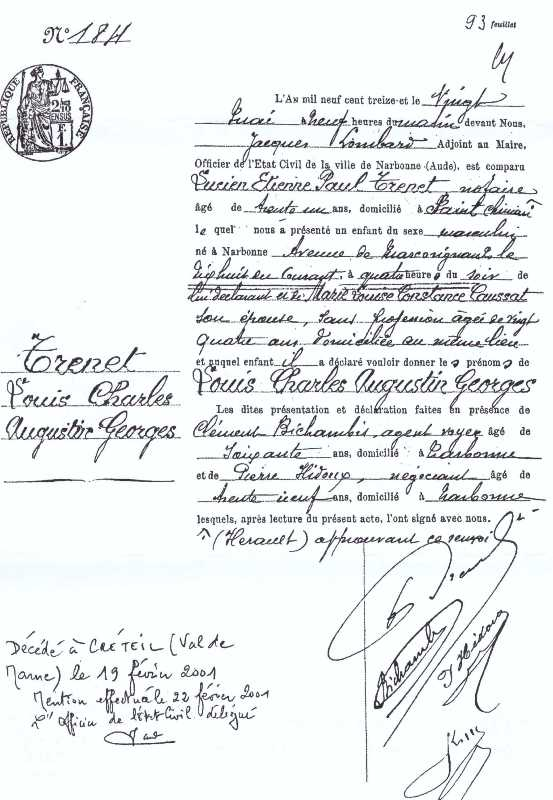 93 feuillet
N° 184
RÉPUBLIQUE FRANÇAISE
L'AN mil neuf cent treize et le Vingt
Mai à Neuf heures du matin devant Nous,
Jacques Lombard Adjoint au Maire,
Officier de l'Etat Civil de la ville de Narbonne (Aude), est comparu
Lucien Etienne Paul Trenet, notaire
âgé de trente un ans, domicilié à Saint Chinian
le quel nous a présenté un enfant du sexe masculin
né à Narbonne Avenue de Marcorignan, le
dix huit du courant, à quatre heures du soir de
lui déclarant et de Marie Louise Constance Caussat
son épouse, sans profession âgée de vingt
quatre ans domiciliée au même lieu
et auquel enfant il a déclaré vouloir donner les prénoms de
Trenet
Louis Charles
Augustin Georges
Louis Charles Augustin Georges
Les dites présentation et déclaration faites en présence de
Clément Bichambis, agent voyer âgé de
Soixante ans, domicilié à Narbonne
et de Pierre Hidoux, négociant âgé de
trente neuf ans, domicilié à Narbonne
lesquels, après lecture du présent acte, l'ont signé avec nous.
(Hérault) approuvant ce renvoi
Bichambis
P Hidoux
Décédé à CRÉTEIL (Val de
Marne) le 19 février 2001
Mention effectuée le 22 février 2001
L'Officier de l'état Civil délégué